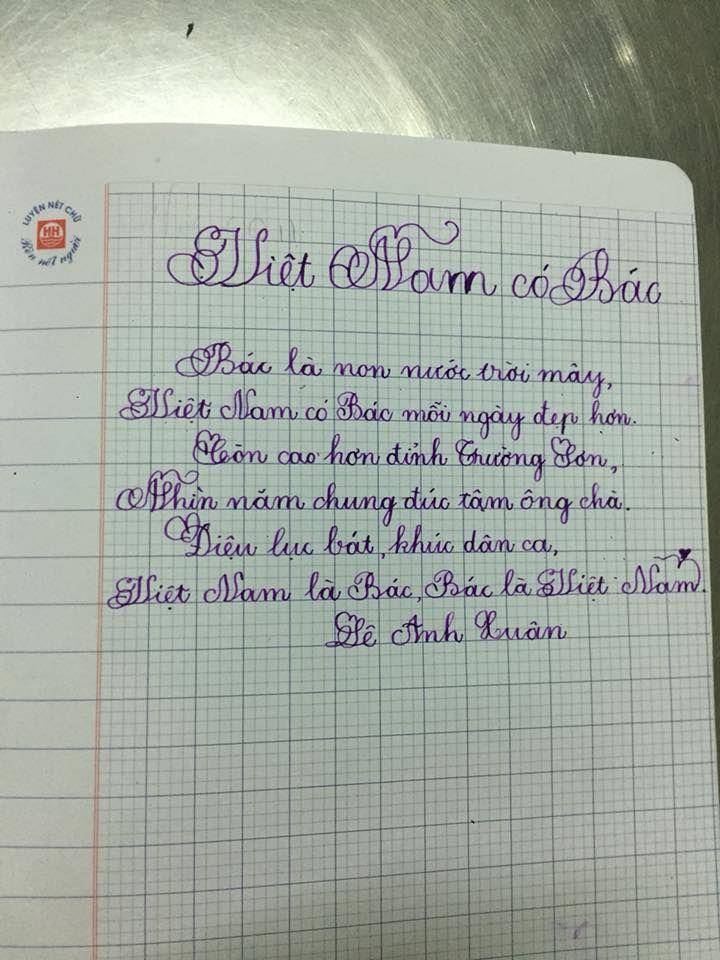 LUYỆN NÉT CHỮ
HH
Rèn nết người
Việt Nam có Bác
Bác là non nước trời mây,
Việt Nam có Bác mỗi ngày đẹp hơn.
Còn cao hơn đỉnh Trường Sơn,
Nhìn năm chung đúc tâm ông cha.
Điệu lục bát, khúc dân ca,
Việt Nam là Bác, Bác là Việt Nam.
Lê Anh Xuân